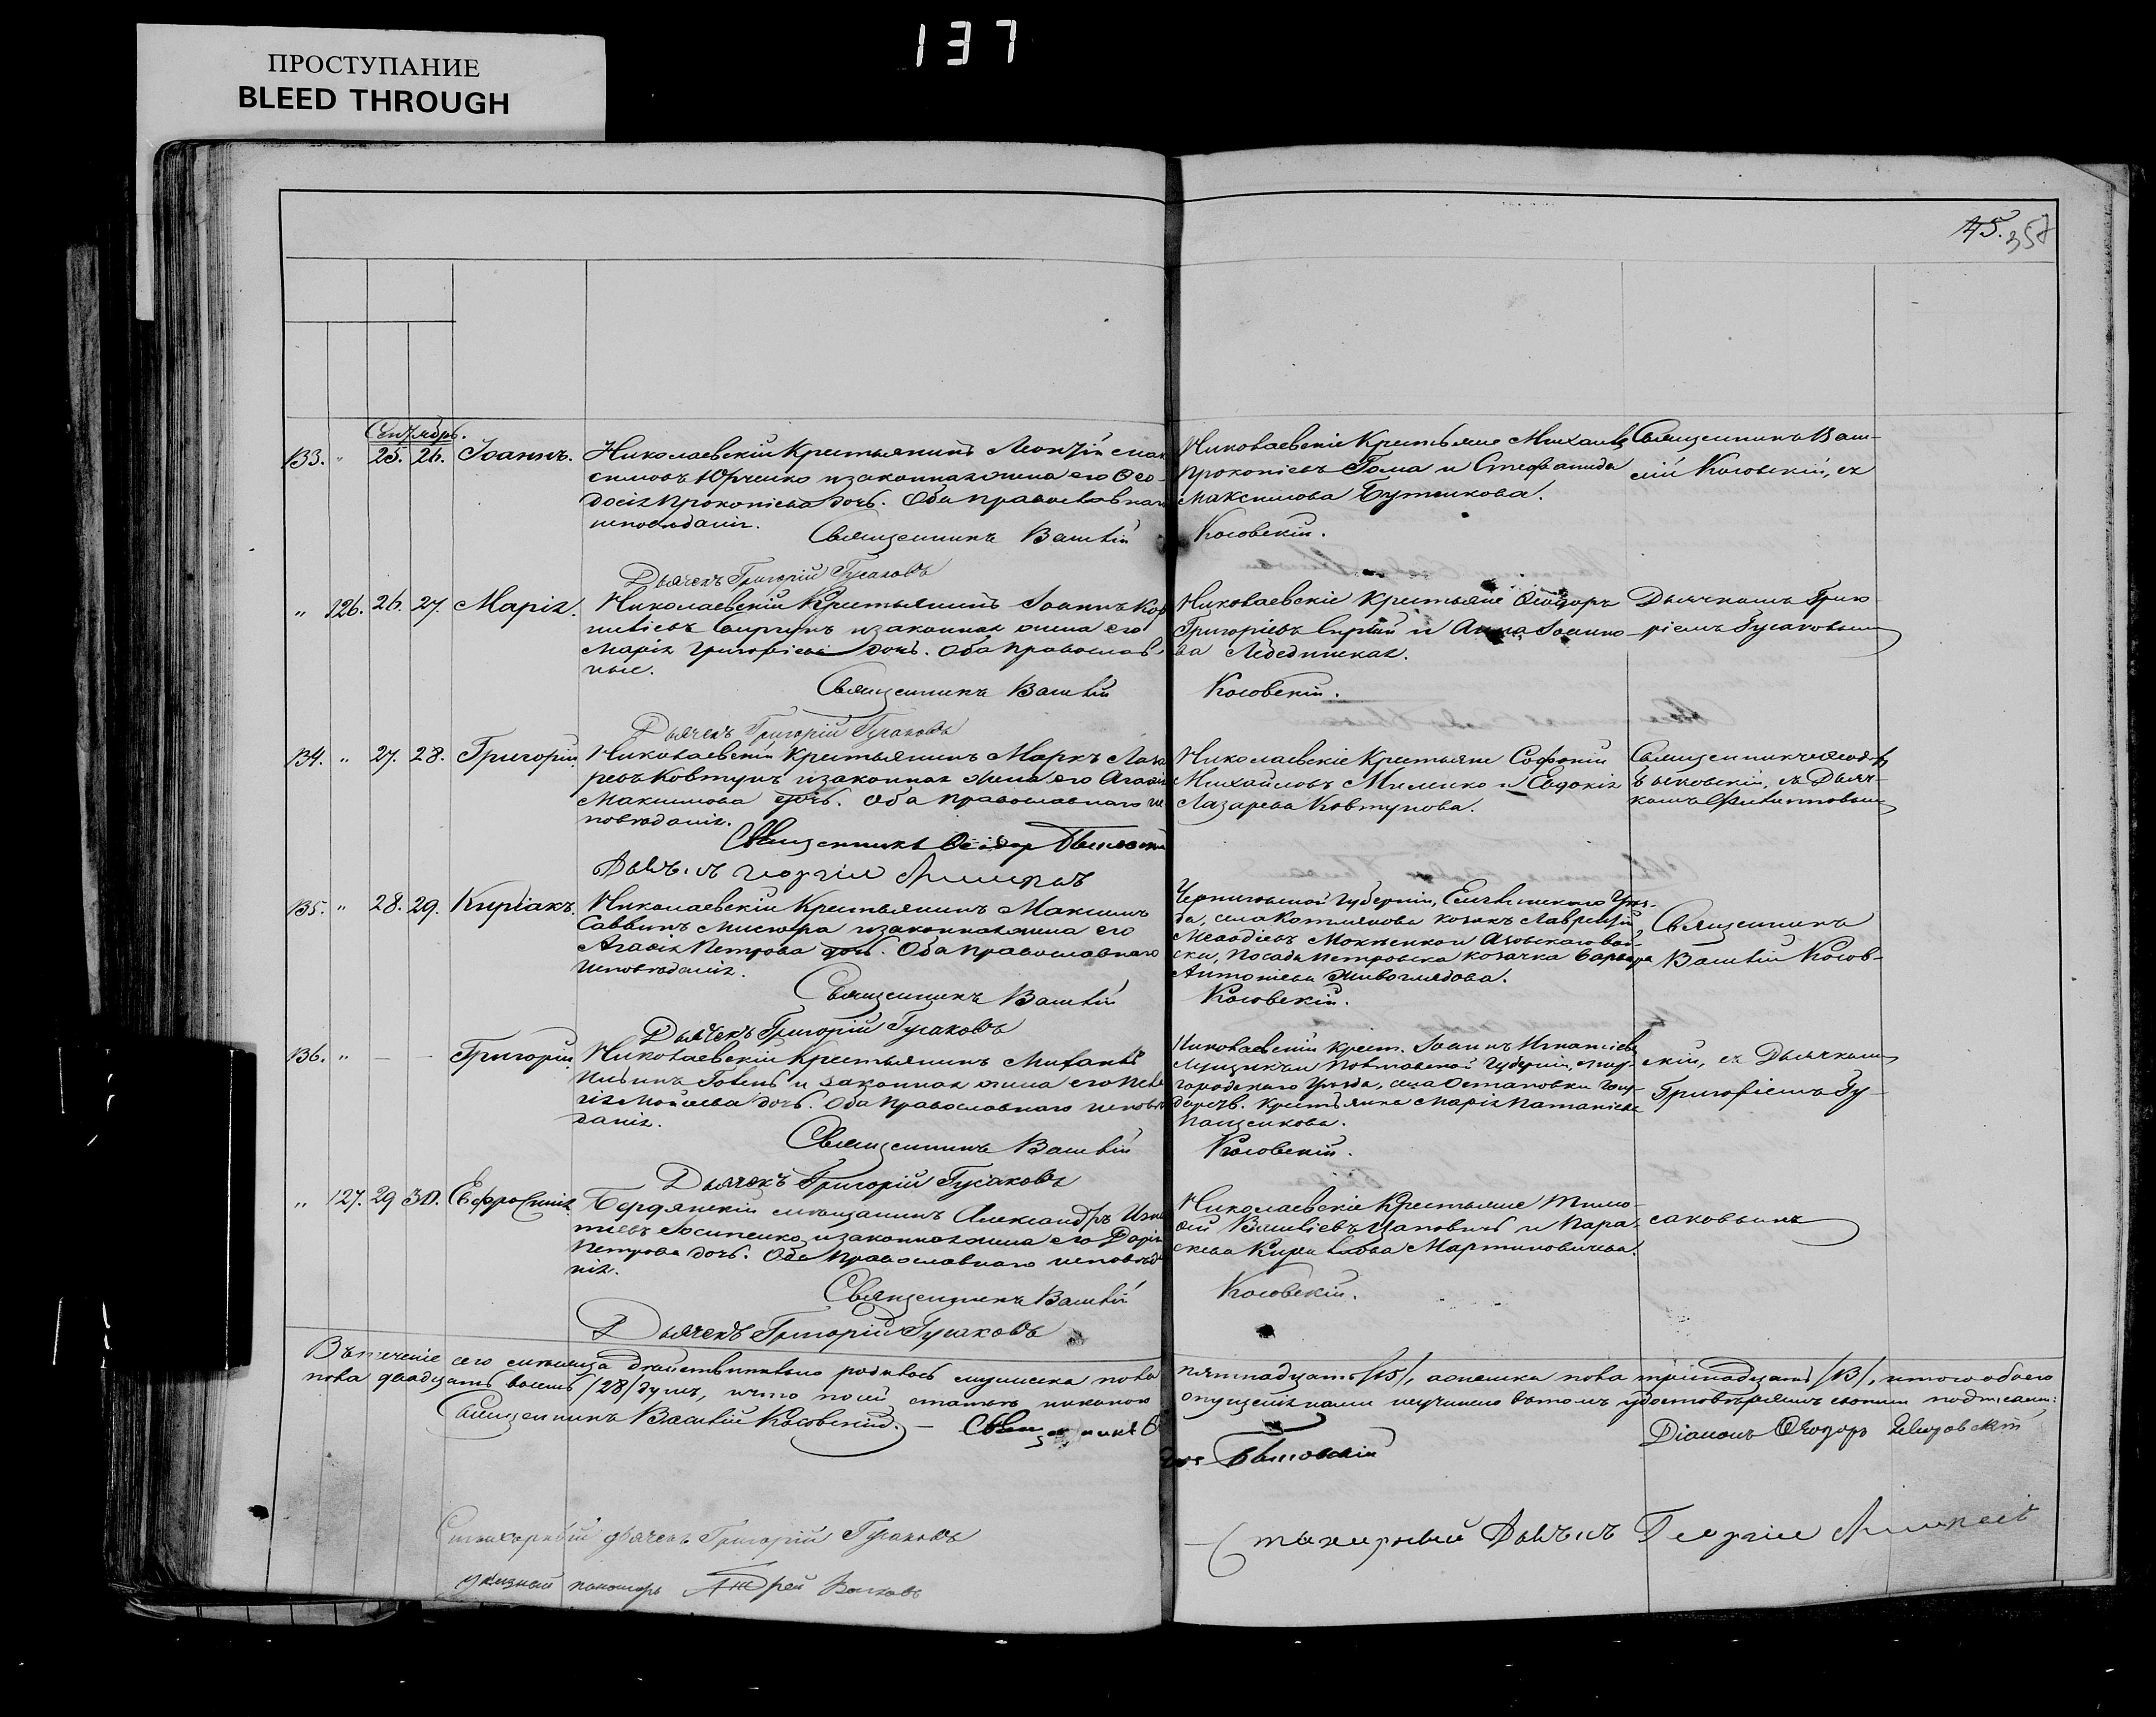 137
ПРОСТУПАНИЕ
BLEED THROUGH
45. 357
Сентябрь.
133. " 25. 26. Іоаннъ.
Николаевскій Крестьянинъ Леонтій Мак
симовъ Юрченко и законная жена его Ѳео-
досія Прокопіева дочь. Оба православнаго
исповѣданія.
Священникъ Василій
Николаевскіе Крестьяне Михаилъ
Прокопіевъ Гома и Стефанида
Максимова Бутенкова.
Косовскій.
Священникъ Васи-
лій Косовскій, съ
Дьячекъ Григорій Гусаковъ
" 126. 26. 27. Марія.
Николаевскій Крестьянинъ Іоаннъ Кор
нилієвъ и законная жена его
Марія Григоріева дочь. Оба православ
ные.
Священникъ Василій
Николаевскіе Крестьяне Ѳеодоръ
Григоріевъ и Анна Іоанно
ва
Косовскій.
Дьячкомъ Григо-
ріемъ Гусаковымъ
Дьячекъ Григорій Гусаковъ
134. " 27. 28. Григорій.
Николаевскій Крестьянинъ Маркъ Лаза
ревъ Ковтунъ и законная жена его Агафія
Максимова дочь. Оба православнаго ис
повѣданія.
Священникъ Ѳеодоръ
Николаевскіе Крестьяне Софоній
Михайловъ Миленко и Евдокія
Лазарева Ковтунова.
Священникъ Ѳеод-ръ
съ Дьяч-
комъ
Дьячекъ Георгій
135. " 28. 29. Киріакъ.
Николаевскій Крестьянинъ Максимъ
Саввинъ Мисюра и законная жена его
Агафія Петрова дочь. Оба Православнаго
Исповѣданія.
Священникъ Василій
Черниговской Губерніи, Уѣз-
да, села козакъ Лаврентій
Меѳодіевъ и Азовскаго вой-
ска, Посада Петровска козачка Варвара
Антоніева Живоглядова.
Косовскій.
Священникъ
Василій Косов-
Дьячекъ Григорій Гусаковъ
136. " — — Григорій.
Николаевскій Крестьянинъ Михаилъ
Ильинъ и законная жена его Пела
гія Моисеева дочь. Оба Православнаго исповѣ
данія.
Священникъ Василій
Николаевскій Крест. Іоаннъ Игнатіевъ
и Полтавской Губерніи, Мир-
городскаго Уѣзда, села Остаповки Госу-
дарств. Крестьянка Марія
Пащенкова.
Косовскій.
скій, съ Дьячкомъ
Григоріемъ Гу-
Дьячекъ Григорій Гусаковъ
" 127. 29 30. Евфросинія.
Бердянскій мѣщанинъ Александръ Игна
тіевъ Іосипенко и законная жена его Дарія
Петрова дочь. Оба Православнаго исповѣда
нія.
Священникъ Василій
Николаевскіе Крестьяне Тимо
ѳей Василіевъ Цаповичъ и Пара
скева Кирилова Мартиновичева.
Косовскій.
саковымъ
Дьячекъ Григорій Гусаковъ
Въ теченіе сего мѣсяца дѣйствительно родилось мужеска пола пятнадцать /15/, а женска пола тринадцать /13/, итого обоего
пола двадцать восемь /28/ душъ, и что по сей статьѣ никакого опущенія нами не учинено въ томъ удостовѣряемъ своими подписами:
Священникъ Василій Косовскій. — Священникъ
Діаконъ Ѳеодоръ
Стихарный дьячекъ Григорій Гусаковъ
Стихарный Дьячекъ Георгій
Указный пономарь Андрей Волховъ